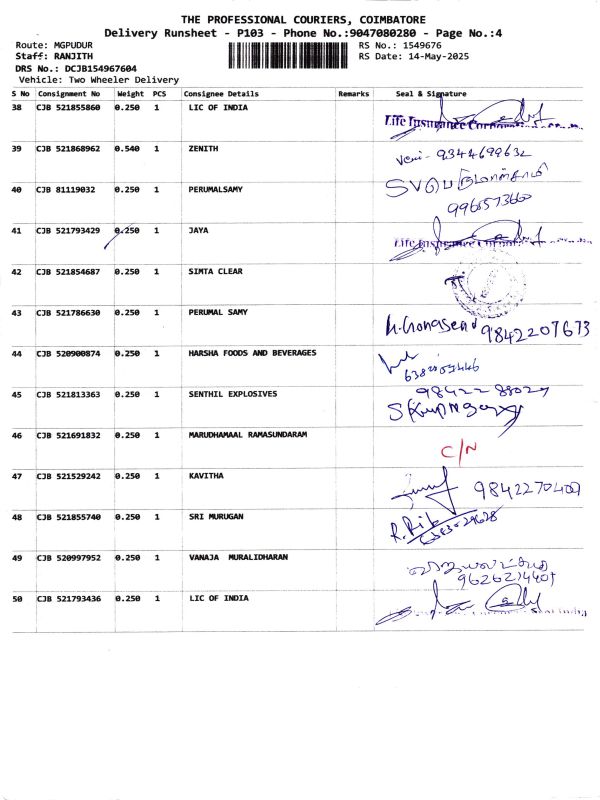 THE PROFESSIONAL COURIERS, COIMBATORE
Delivery Runsheet - P103 - Phone No.:9047080280 - Page No.:4
Route: MGPUDUR RS No.: 1549676
Staff: RANJITH RS Date: 14-May-2025
DRS No.: DCJB154967604
Vehicle: Two Wheeler Delivery
S No Consignment No Weight PCS Consignee Details Remarks Seal & Signature
38 CJB 521855860 0.250 1 LIC OF INDIA
Life Insurance
39 CJB 521868962 0.540 1 ZENITH
9344699632
40 CJB 81119032 0.250 1 PERUMALSAMY
41 CJB 521793429 0.250 1 JAYA
Life Insurance
42 CJB 521854687 0.250 1 SIMTA CLEAR
43 CJB 521786630 0.250 1 PERUMAL SAMY
9842207673
44 CJB 520900874 0.250 1 HARSHA FOODS AND BEVERAGES
45 CJB 521813363 0.250 1 SENTHIL EXPLOSIVES
46 CJB 521691832 0.250 1 MARUDHAMAAL RAMASUNDARAM
C/N
47 CJB 521529242 0.250 1 KAVITHA
48 CJB 521855740 0.250 1 SRI MURUGAN
49 CJB 520997952 0.250 1 VANAJA MURALIDHARAN
50 CJB 521793436 0.250 1 LIC OF INDIA